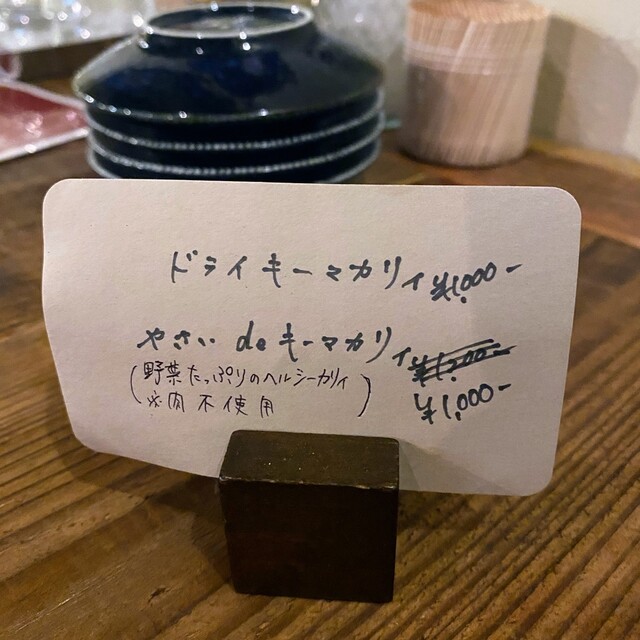 ドライキーマカリィ ¥1,000-
やさい de キーマカリィ ¥1,200-
¥1,000-
(野菜たっぷりのヘルシーカリィ
※肉不使用)